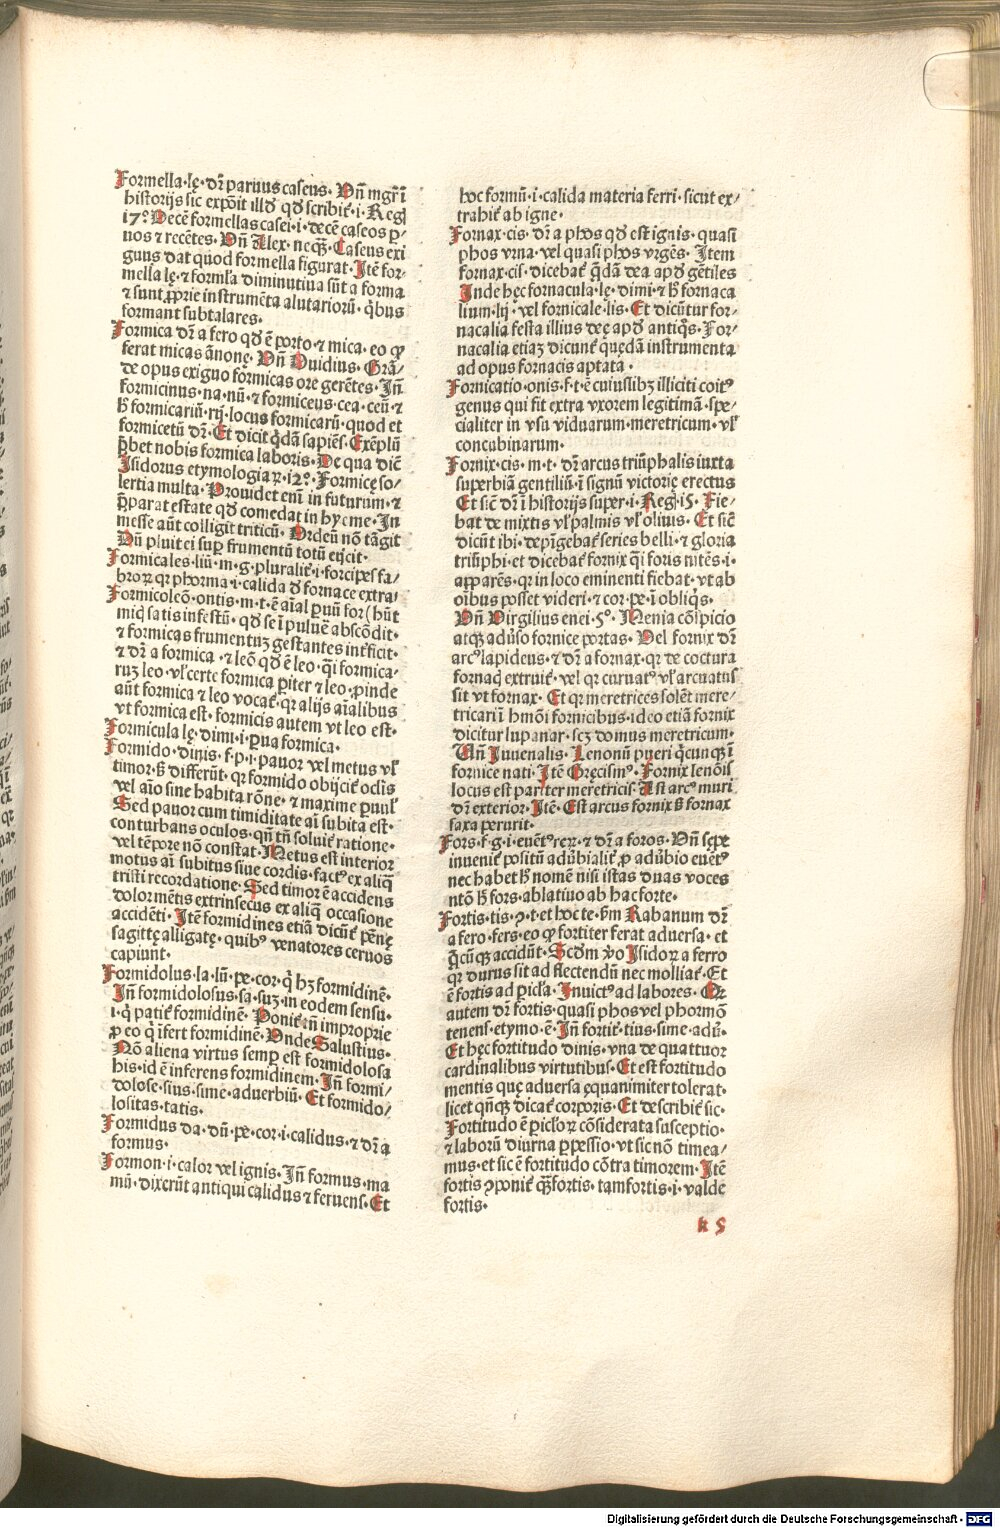 Formella·lę·dr̄ paruus caseus· Vn̄ mgr̄ ī
historijs sic expōit illđ qđ scribit̄·i·Reg̨
17°·Decē formellas casei·i·decē caseos ꝑ-
uos ⁊ recētes· Vn̄ Alex· neqȝ· Caseus exi
guus dat quod formella figurat· Itē for-
mella lę·⁊ formĺa diminutiua sūt a forma
⁊ sunt ꝓprie instrumēta alutarioꝝ· q̄bus
formant subtalares·
Formica dr̄ a fero qđ ē porto·⁊ mica· eo ꝙ
ferat micas ānonę· Vn̄ Ouidius· Grā/
de opus exiguo formicas ore gerētes· In̄
formicinus·na·nū·⁊ formiceus·cea·ceū·⁊
ħ formicariū·rij·locus formicarū·quod et
formicetū dr̄· Et dicit q̄dā sapiēs· Exēplū
p̄bet nobis formica laboris· De qua dic̄
Isidorus etymologiaꝝ·12°· Formicę so/
lertia multa· Prouidet enī in futurum·⁊
p̄parat estate qđ comedat in hyeme· In
messe aūt colligit triticū· Ordeū nō tāgit
Dū pluit ei suꝑ frumentū totū eijcit·
Formicales·liū·m·g·pluralit̄·i·forcipes fa/
broꝝ qꝛ phorma·i·calida đ fornace extra/
Formicoleō·ontis·m·t·ē aīal ꝑuū for (hūt
miq̨ satis infestū· qđ se ī puluē abscōdit·
⁊ formicas frumentuȝ gestantes int̄ficit·
⁊ dr̄ a formica·⁊ leō qđ ē leo·q̄i formica-
ruȝ leo·vĺ certe formica ꝑiter ⁊ leo·ꝓinde
aūt formica ⁊ leo vocat̄·qꝛ alijs aīalibus
vt formica est· formicis autem vt leo est·
Formicula lę·dimi·i·ꝑua formica·
Formido·dinis·f·p·i·pauor vel metus vĺ
timor·ẞ differūt·qꝛ formido obijcit̄ odis
vel aīo sine habita rōne·⁊ maxime ꝑuuĺ
Sed pauor cum timiditate aī subita est·
conturbans oculos·qn̄ tn̄ soluit̄ ratione·
vel tēpore nō constat· Metus est interior
motus aī subitus siue cordis·fact⁹ ex aliq̄
tristi recordatione· Sed timor ē accidens
dolor mētis extrinsecus ex aliq̄ occasione
accidēti· Itē formidines etiā dicūt̄ pēnę
sagittę alligatę·quib⁹ venatores ceruos
capiunt·
Formidolus·la·lū·pe·cor·q̄ hȝ formidinē·
In̄ formidolosus·sa·suȝ·in eodem sensu·
·i·q̄ patit̄ formidinē· Ponit̄ tn̄ improprie
ꝓ eo q̄ īfert formidinē· Vnde Salustius·
Nō aliena virtus semꝑ est formidolosa
his·id ē inferens formidinem· In̄ formi/
dolose·sius·sime·aduerbiū· Et formido/
lositas·tatis·
Formidus da·dū·pe·cor·i·calidus·⁊ dr̄ a
formus·
Formon·i·calor vel ignis· In̄ formus·ma
mū·dixerūt antiqui calidus ⁊ feruens· Et
hoc formū·i·calida materia ferri·sicut ex/
trahit̄ ab igne·
Fornax·cis·dr̄ a phos qđ est ignis·quasi
phos vrna·vel quasi phos vrgēs· Item
fornax·cis·dicebat̄ q̄dā dea apđ gētiles
Inde hęc fornacula·lę·dimi·⁊ ħ fornaca
lium·lij·vel fornicale·lis· Et dicūtur for-
nacalia festa illius deę apđ antiq̄s· For-
nacalia etiaȝ dicunt̄ quędā instrumenta
ad opus fornacis aptata·
Fornicatio·onis·f·t·ē cuiuslibȝ illiciti coit⁹
genus qui fit extra vxorem legitimā·spe-
cialiter in vsu viduarum·meretricum·vĺ
concubinarum·
Fornix·cis·m·t·dr̄ arcus triūphalis iuxta
superbiā gentiliū·ī signū victorię erectus
Et sic̄ dr̄ ī historijs super·i·Reg̨·15· Fie-
bat de mixtis vĺ palmis vĺ oliuis· Et sic̄
dicūt ibi·depīgebat̄ series belli·⁊ gloria
triūphi·et dicebat̄ fornix q̄i foris nitēs·i·
apparēs·qꝛ in loco eminenti fiebat·vt ab
oībus posset videri·⁊ cor·pe·ī obliq̄s·
Vn̄ Virgilius enei·5°· Menia cōspicio
atqȝ adūso fornice portas· Vel fornix dr̄
arc⁹ lapideus·⁊ dr̄ a fornax·qꝛ de coctura
fornac̨ extruit̄·vel qꝛ curuat⁹ vĺ arcuatus
sit vt fornax· Et qꝛ meretrices solēt mere/
tricari ī hmōi fornicibus·ideo etiā fornix
dicitur lupanar·scȝ domus meretricum·
Vn̄ Iuuenalis· Lenonū pueri q̄cunqȝ ī
fornice nati· Itē Gręcism⁹· Fornix lenōis
locus est pariter meretricis· Ast arc⁹ muri
dr̄ exterior· Itē· Est arcus fornix ẞ fornax
saxa perurit·
Fors·f·g·i·euēt⁹ reꝝ·⁊ dr̄ a foros· Vn̄ sępe
inuenit̄ positū adūbialit̄·ꝓ adūbio euēt⁹
nec habet ħ nomē nisi istas duas voces
ntō ħ fors·ablatiuo ab hac forte·
Fortis·tis·ꝯ·t·et hoc te·s̄m Rabanum dr̄
a fero·fers·eo ꝙ fortiter ferat aduersa·et
q̄cūqȝ accidūt· Scđm v̊o Isidoꝝ a ferro
qꝛ durus sit ad flectendū nec molliat̄· Et
ē fortis ad ꝑicĺa· Inuict⁹ ad labores· Or
autem dr̄ fortis·quasi phos vel phormō
tenens·etymo·ē· In̄ fortit̄·tius·sime·adū·
Et hęc fortitudo dinis·vna de quattuor
cardinalibus virtutibus· Et est fortitudo
mentis quę aduersa ęquanimiter tolerat·
licet qn̄qȝ dicat̄ corporis· Et describit̄ sic·
Fortitudo ē ꝑicĺoꝝ cōsiderata susceptio·
⁊ laborū diurna ꝑpessio·vt sic nō timea/
mus·et sic ē fortitudo cōtra timorem· Itē
fortis ꝯponit̄ q̄ȝfortis·tamfortis·i·valde
fortis·
k 5
Digitalisierung gefördert durch die Deutsche Forschungsgemeinschaft - DFG